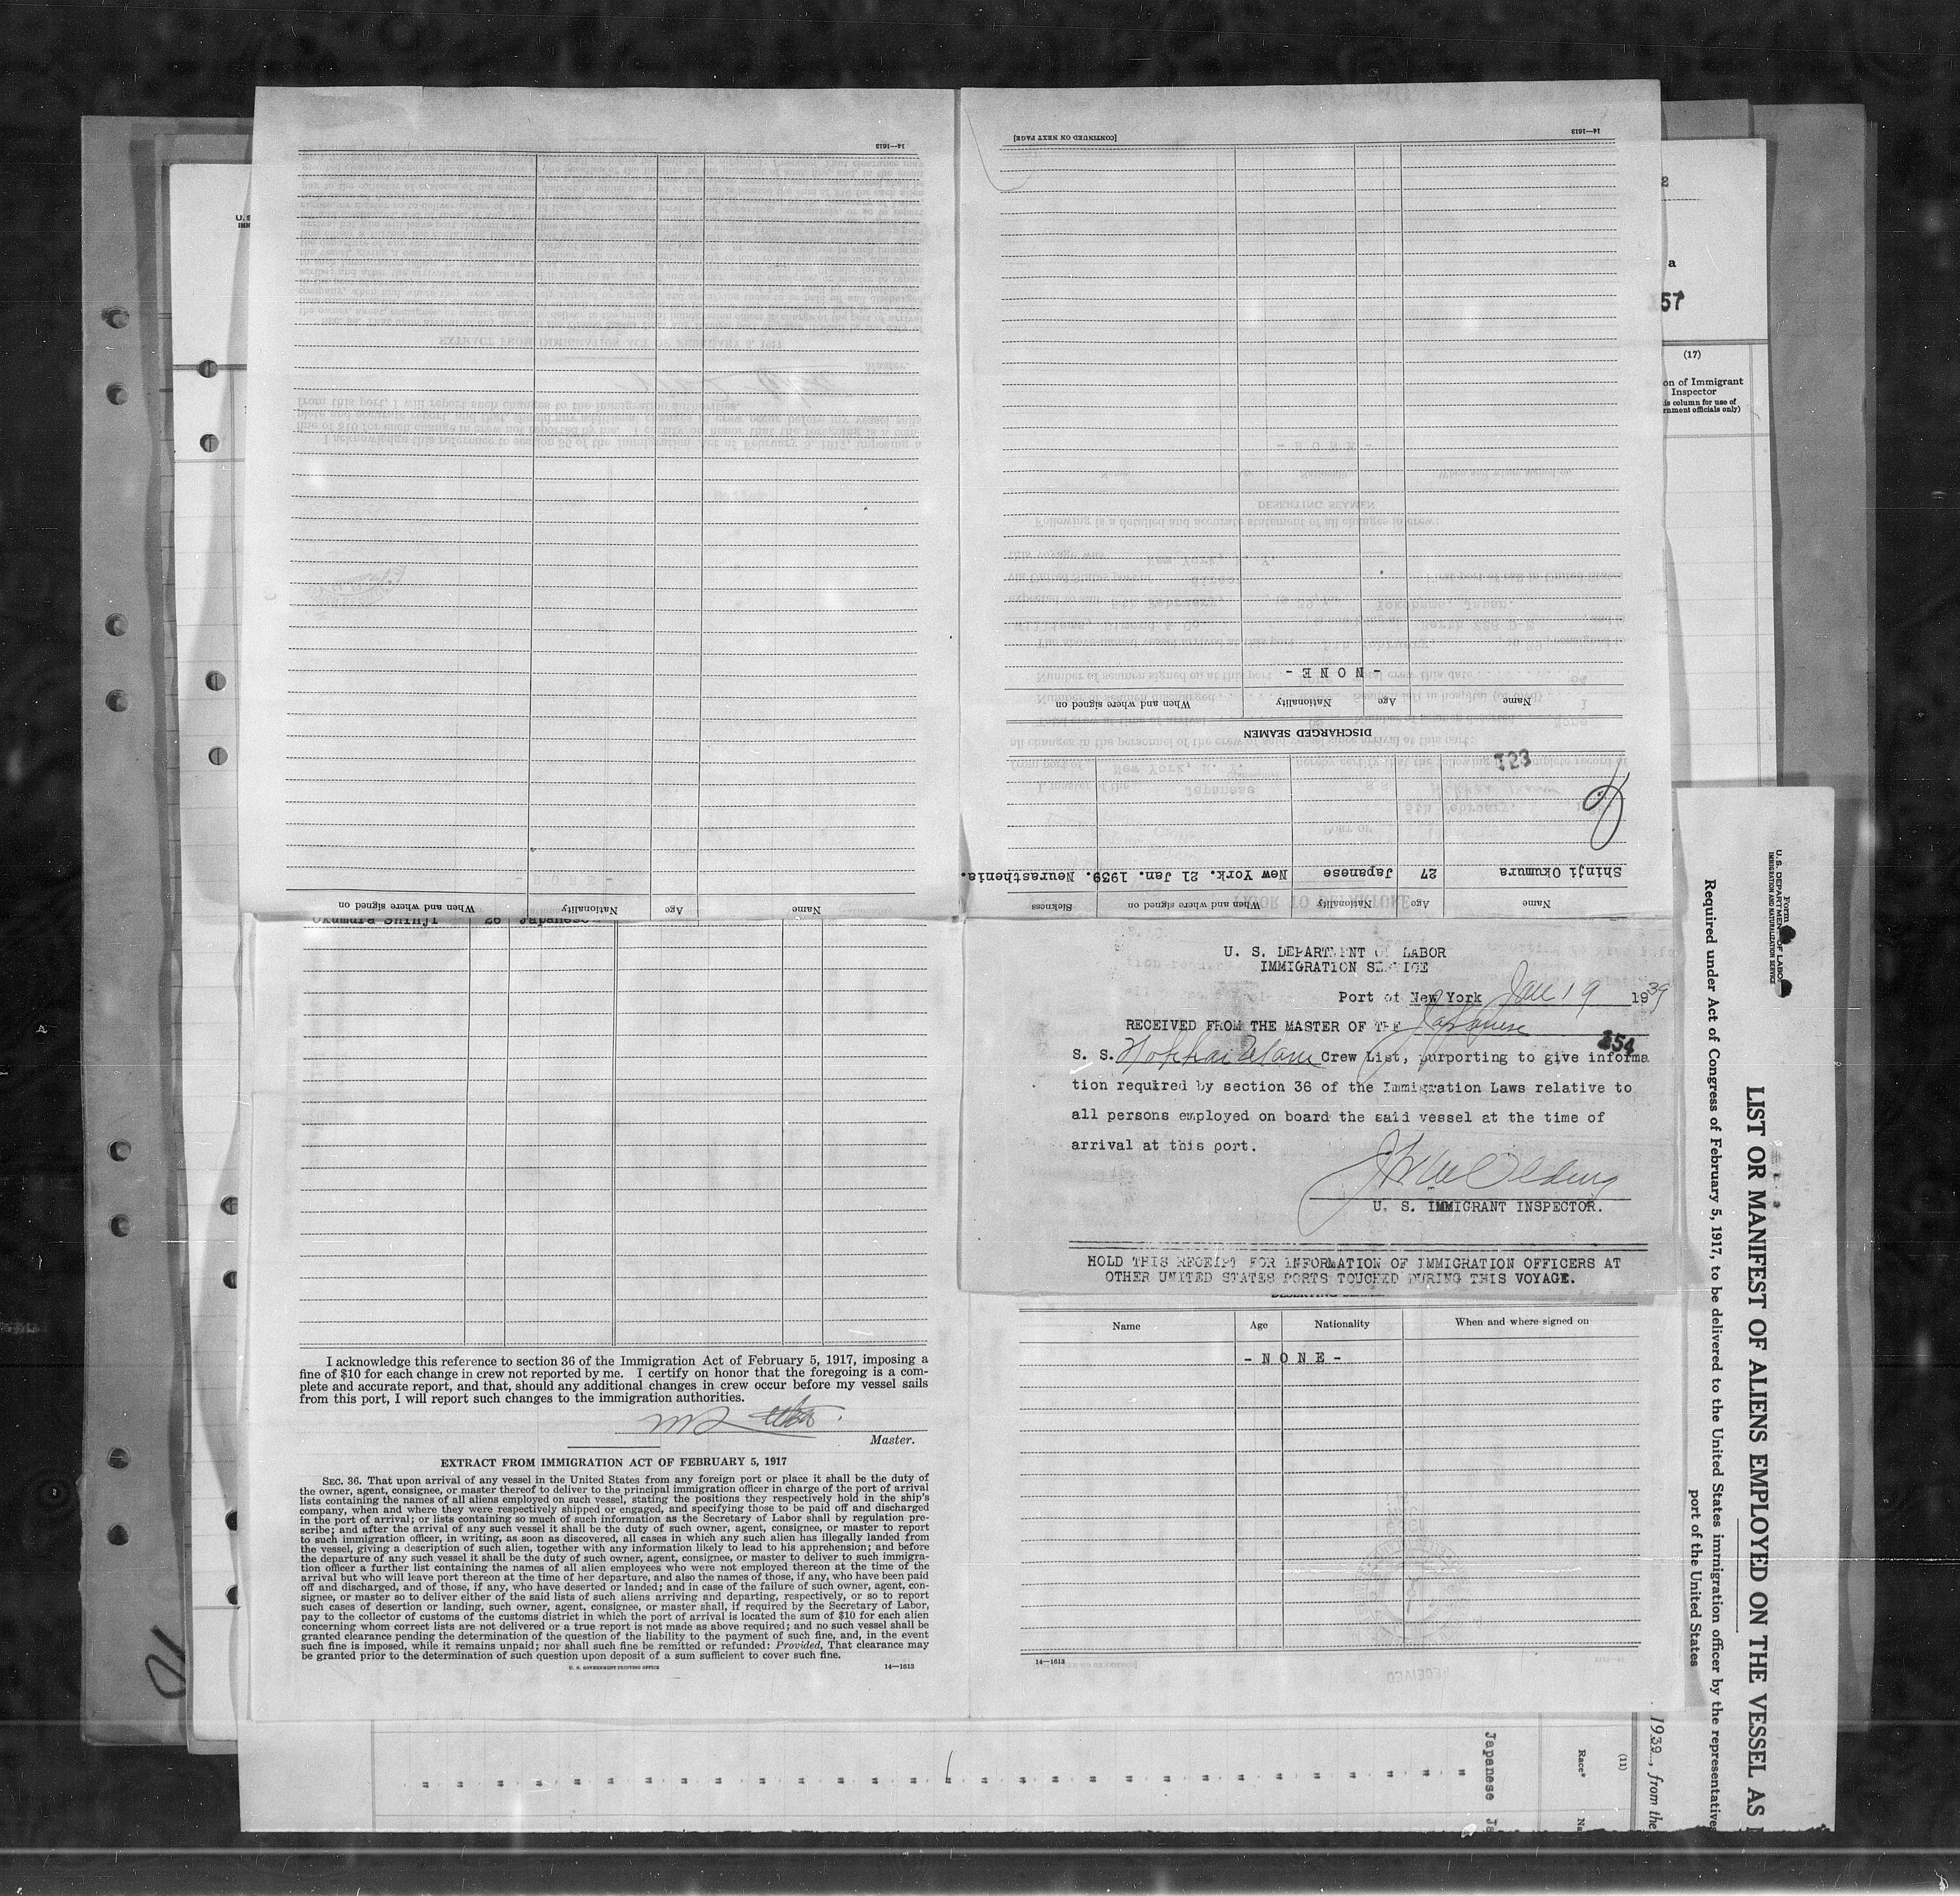 14—1613
When and where signed on
Nationality
Age
Name
[CONTINUED ON NEXT PAGE]
14—1613
- N O N E -
Name
Age
Nationality
When and where signed on
DISCHARGED SEAMEN
123
Shinji Okumura 27 Japanese New York. 21 Jan. 1939. Neurasthenia.
Name
Age
Nationality
When and where signed on
Sickness
Okumura Shinji 26 Japanese
I acknowledge this reference to section 36 of the Immigration Act of February 5, 1917, imposing a
fine of $10 for each change in crew not reported by me. I certify on honor that the foregoing is a com-
plete and accurate report, and that, should any additional changes in crew occur before my vessel sails
from this port, I will report such changes to the immigration authorities.
Master.
EXTRACT FROM IMMIGRATION ACT OF FEBRUARY 5, 1917
SEC. 36. That upon arrival of any vessel in the United States from any foreign port or place it shall be the duty of
the owner, agent, consignee, or master thereof to deliver to the principal immigration officer in charge of the port of arrival
lists containing the names of all aliens employed on such vessel, stating the positions they respectively hold in the ship's
company, when and where they were respectively shipped or engaged, and specifying those to be paid off and discharged
in the port of arrival; or lists containing so much of such information as the Secretary of Labor shall by regulation pre-
scribe; and after the arrival of any such vessel it shall be the duty of such owner, agent, consignee, or master to report
to such immigration officer, in writing, as soon as discovered, all cases in which any such alien has illegally landed from
the vessel, giving a description of such alien, together with any information likely to lead to his apprehension; and before
the departure of any such vessel it shall be the duty of such owner, agent, consignee, or master to deliver to such immigra-
tion officer a further list containing the names of all alien employees who were not employed thereon at the time of the
arrival but who will leave port thereon at the time of her departure, and also the names of those, if any, who have been paid
off and discharged, and of those, if any, who have deserted or landed; and in case of the failure of such owner, agent, con-
signee, or master so to deliver either of the said lists of such aliens arriving and departing, respectively, or so to report
such cases of desertion or landing, such owner, agent, consignee, or master shall, if required by the Secretary of Labor,
pay to the collector of customs of the customs district in which the port of arrival is located the sum of $10 for each alien
concerning whom correct lists are not delivered or a true report is not made as above required; and no such vessel shall be
granted clearance pending the determination of the question of the liability to the payment of such fine, and, in the event
such fine is imposed, while it remains unpaid; nor shall such fine be remitted or refunded: Provided, That clearance may
be granted prior to the determination of such question upon deposit of a sum sufficient to cover such fine.
U. S. GOVERNMENT PRINTING OFFICE
14—1613
U. S. DEPARTMENT OF LABOR
IMMIGRATION SERVICE
Port of New York Jan 19 1939
RECEIVED FROM THE MASTER OF THE Japanese
254
S. S. Hokkai Maru Crew List, purporting to give informa
tion required by section 36 of the Immigration Laws relative to
all persons employed on board the said vessel at the time of
arrival at this port.
U. S. IMMIGRANT INSPECTOR.
HOLD THIS RECEIPT FOR INFORMATION OF IMMIGRATION OFFICERS AT
OTHER UNITED STATES PORTS TOUCHED DURING THIS VOYAGE.
Name
Age
Nationality
When and where signed on
- N O N E -
14—1613
2
a
57
(17)
on of Immigrant
Inspector
is column for use of
rnment officials only)
Form
U. S. DEPARTMENT OF LABOR
IMMIGRATION AND NATURALIZATION SERVICE
LIST OR MANIFEST OF ALIENS EMPLOYED ON THE VESSEL AS
Required under Act of Congress of February 5, 1917, to be delivered to the United States immigration officer by the representatives
port of the United States
1939, from the
(11)
Race*
Japanese